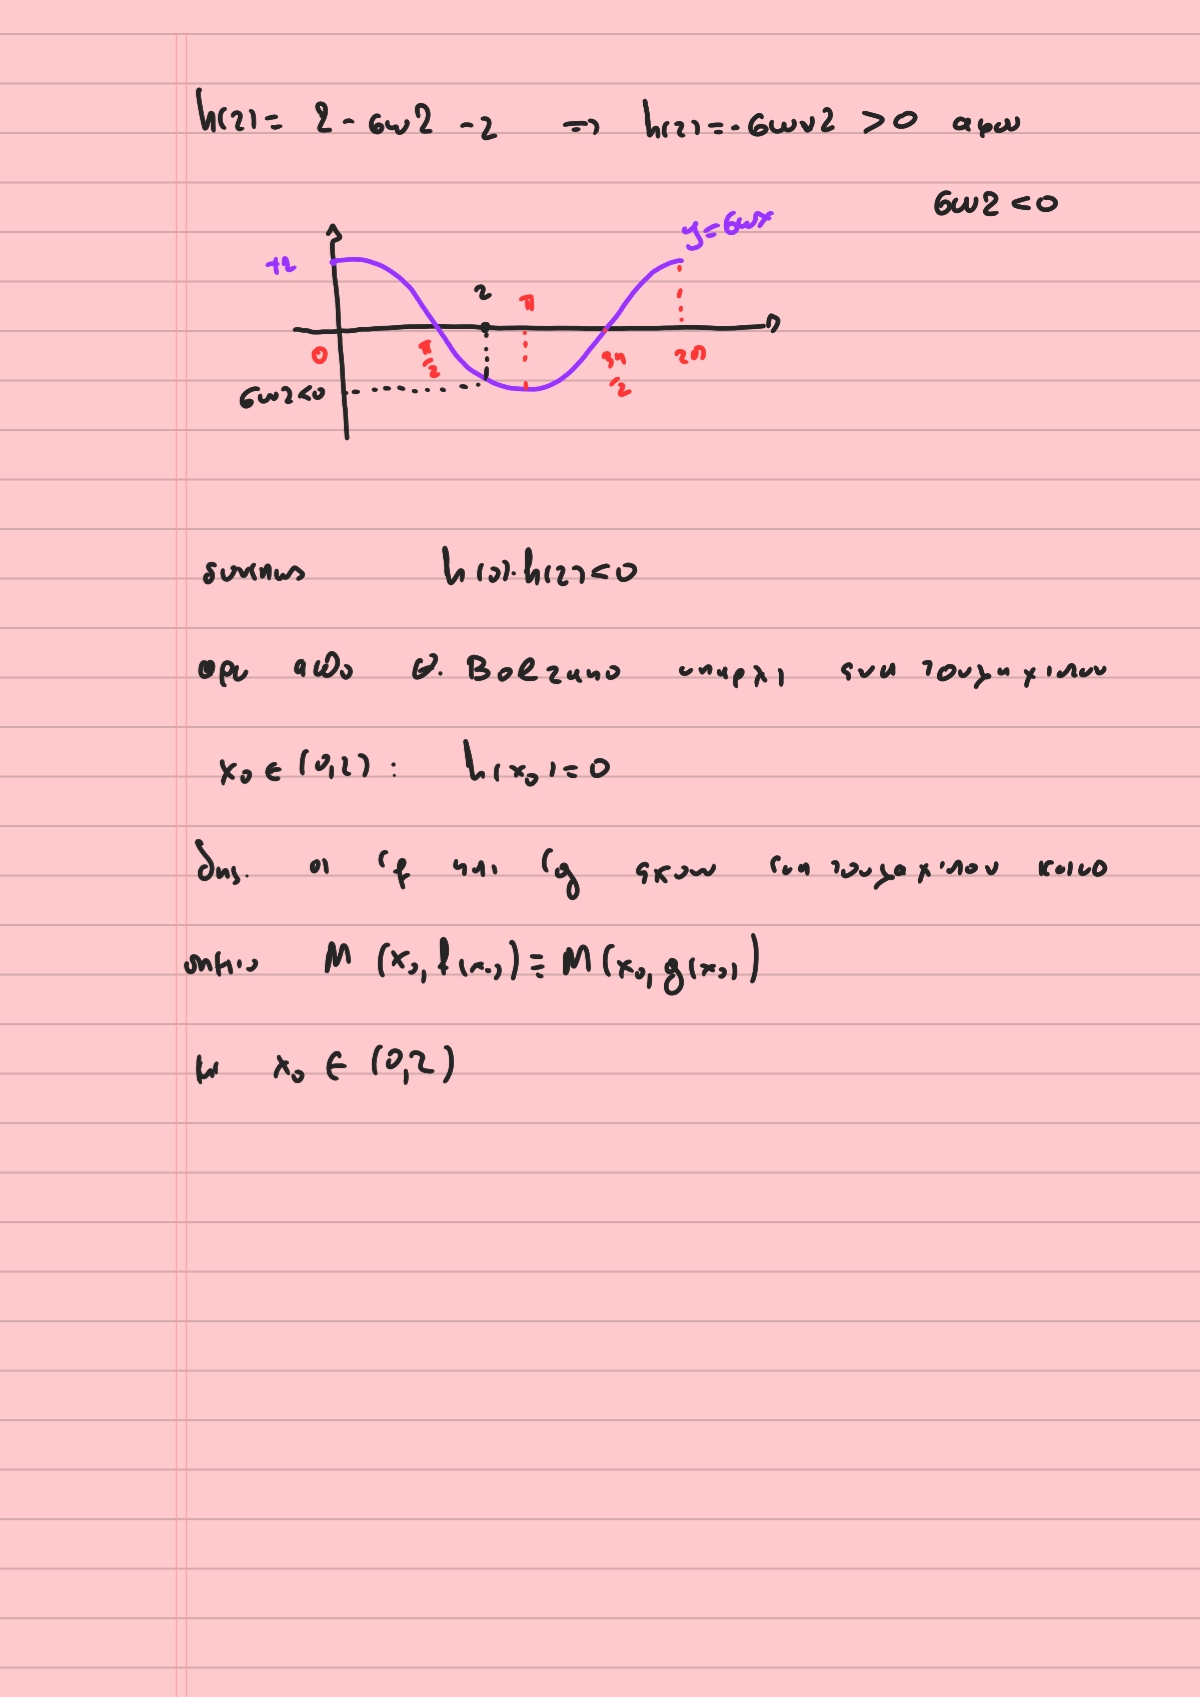 h(2) = 2 - συν2 - 2 ⇒ h(2) = -συν2 > 0 αφου
συν2 < 0
y = συνx
+1
2
π
0
π/2
3π/2
2π
συν2<0
συνεπως h(0)·h(2) < 0
αρα απο θ. Bolzano υπαρχει ενα τουλαχιστον
x₀ ∈ (0,2) : h(x₀) = 0
δηλ. οι Cf και Cg εχουν ενα τουλαχιστον κοινο
σημειο M (x₀, f(x₀)) ≡ M(x₀, g(x₀))
με x₀ ∈ (0,2)